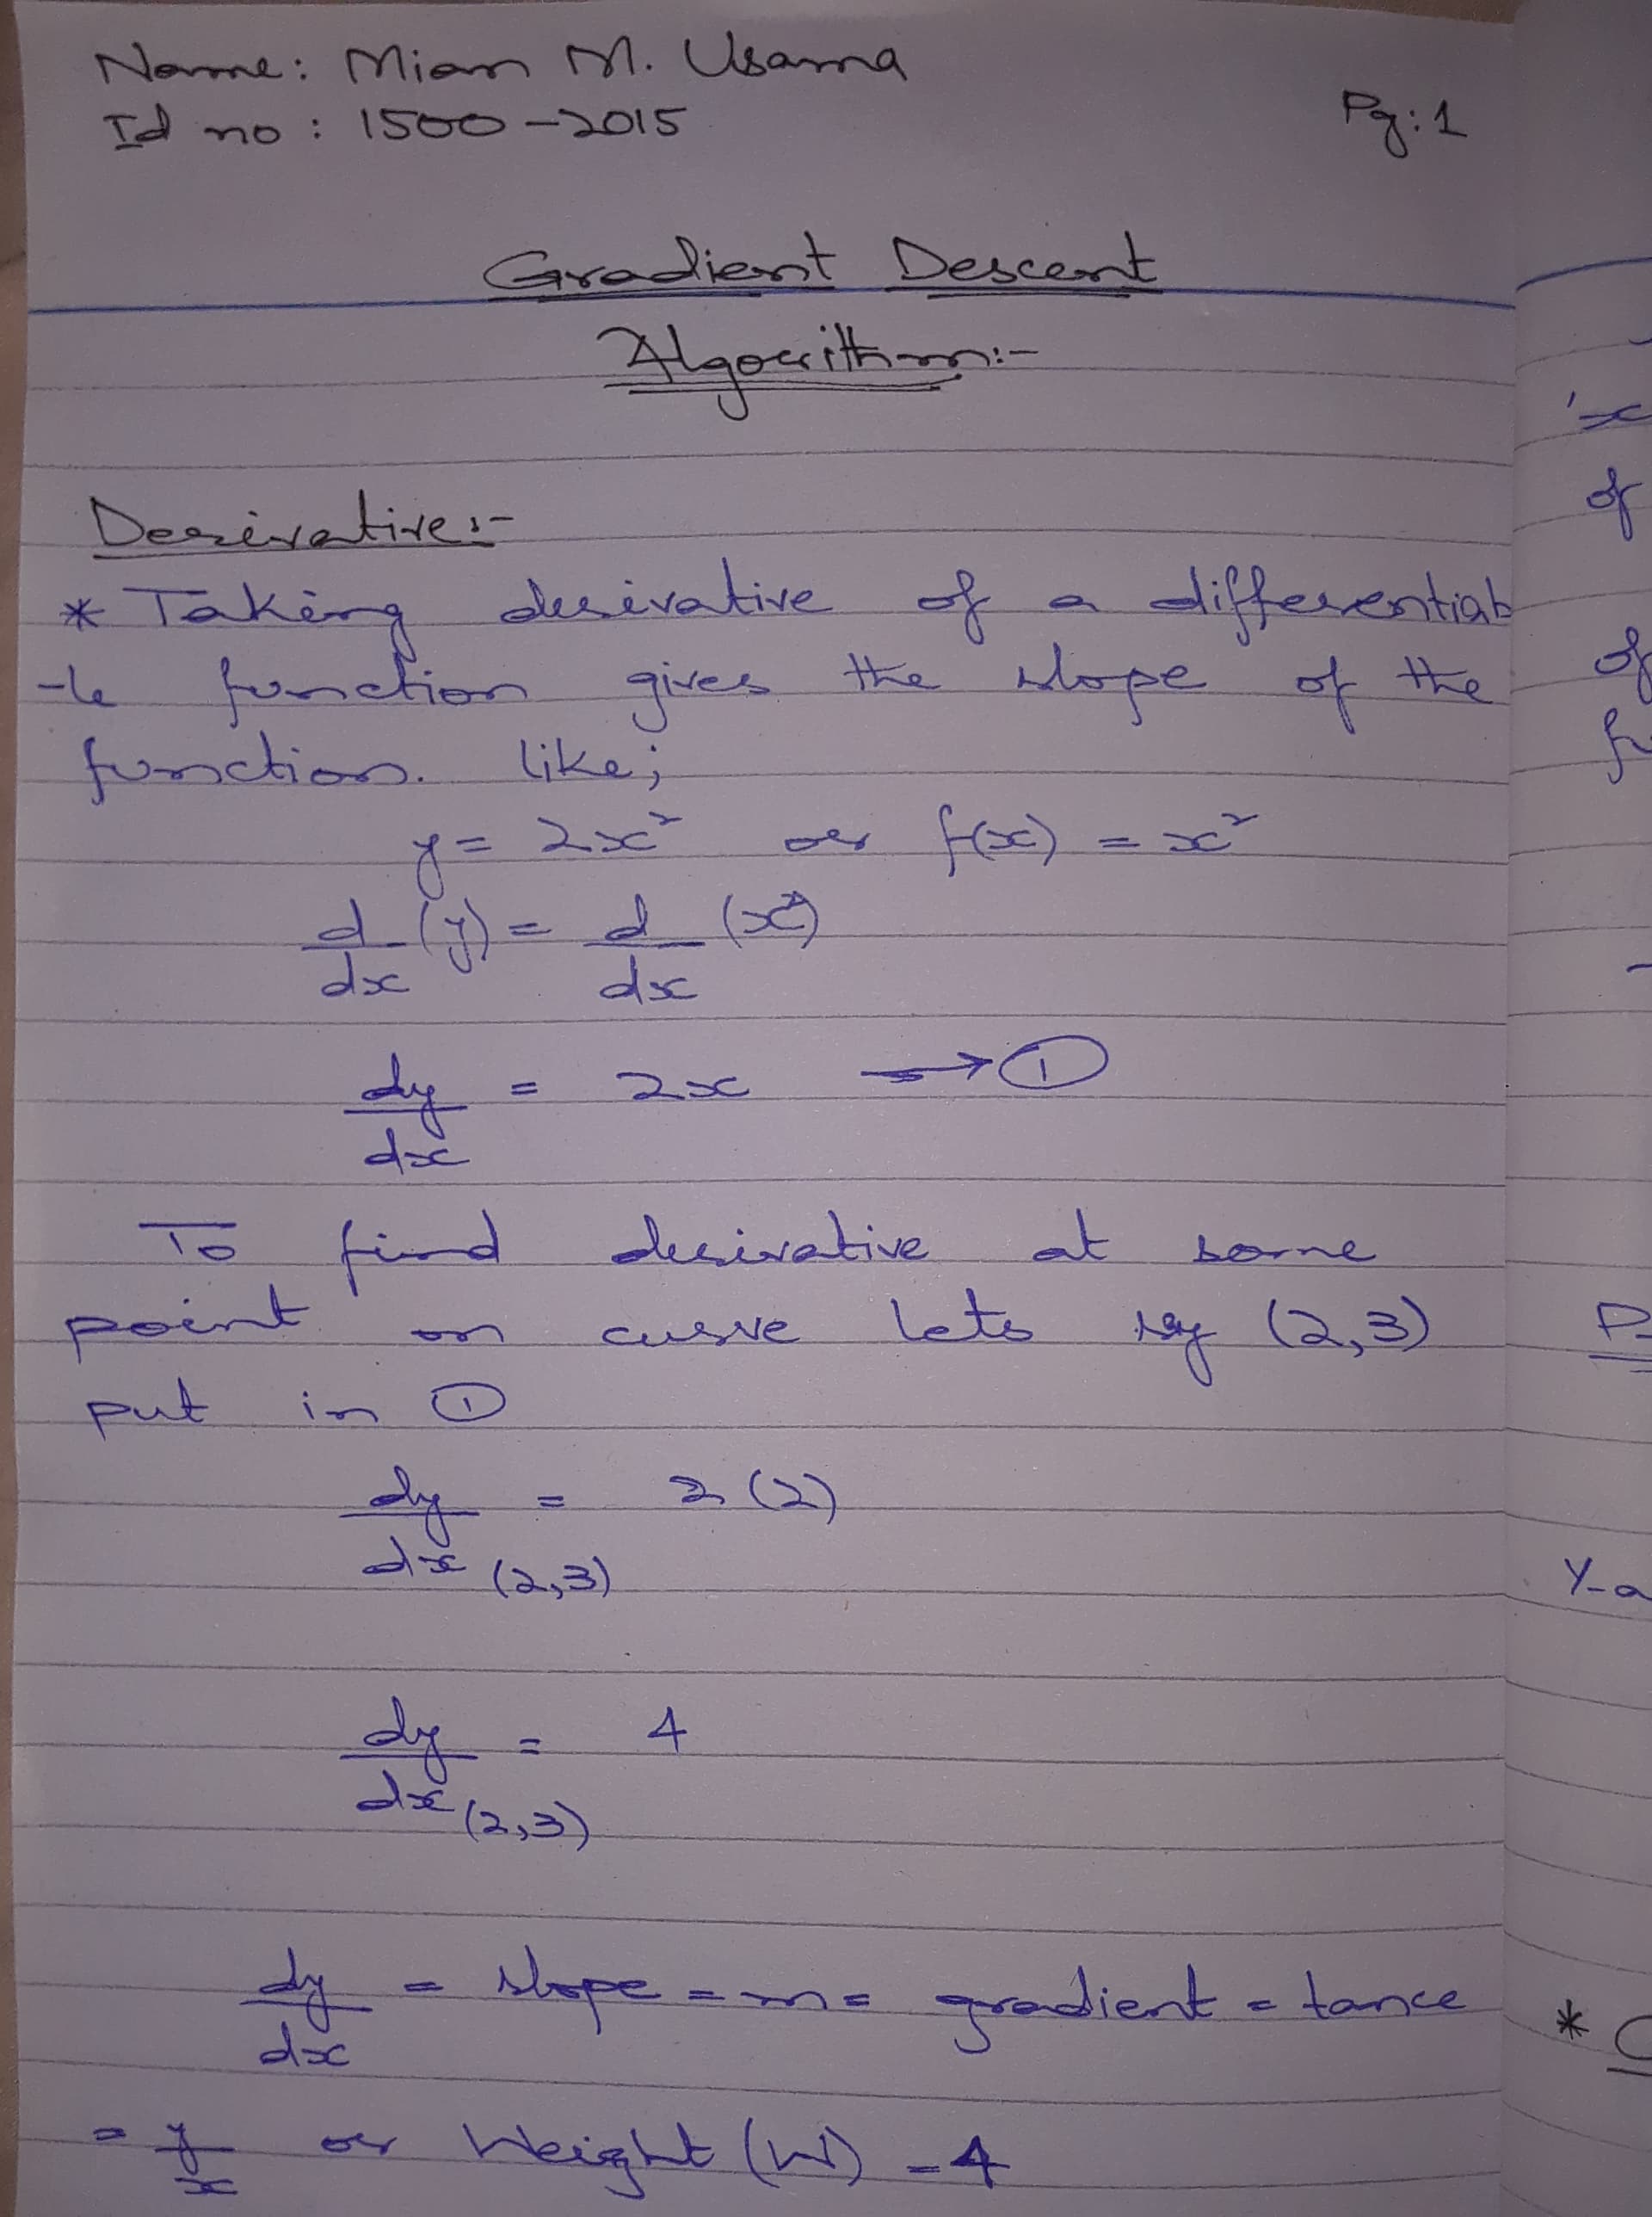 Name: Mian M. Usama
Id no: 1500-2015
Pg: 1
Gradient Descent
Algorithm:-
Derivative:-
* Taking derivative of a differentiab
-le function gives the slope of the
function. like;
y = 2x² or f(x) = x²
d/dx (y) = d/dx (x²)
dy/dx = 2x → ①
To find derivative at some
point on curve lets say (2,3)
put in ①
dy/dx (2,3) = 2(2)
dy/dx (2,3) = 4
dy/dx = slope = m = gradient = tance
= y/x or Weight (W) = 4
'x
of
of
fu
Y-a
*